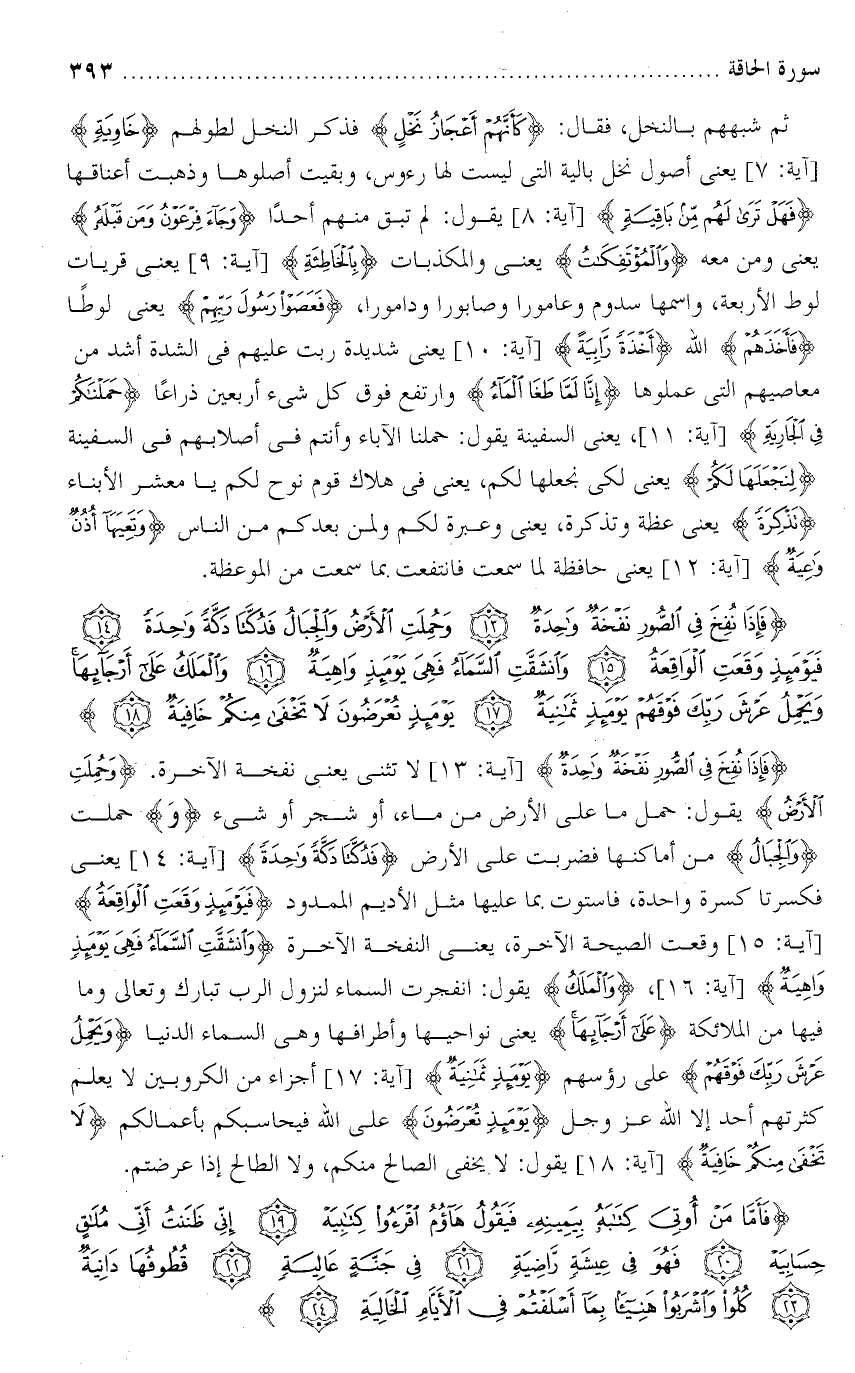 سورة الحاقة ........................................................................ ٣٩٣
ثم شبههم بالنخل، فقال: ﴿كَأَنَّهُمْ أَعْجَازُ نَخْلٍ﴾ فذكر النخل لطولهم ﴿خَاوِيَةٍ﴾
[آية: ٧] يعنى أصول نخل بالية التى ليست لها رءوس، وبقيت أصلوها وذهبت أعناقها
﴿فَهَلْ تَرَىٰ لَهُم مِّنۢ بَاقِيَةٍ﴾ [آية: ٨] يقول: لم تبق منهم أحدًا ﴿وَجَآءَ فِرْعَوْنُ وَمَن قَبْلَهُۥ﴾
يعنى ومن معه ﴿وَٱلْمُؤْتَفِكَـٰتُ﴾ يعنى والمكذبات ﴿بِٱلْخَاطِئَةِ﴾ [آية: ٩] يعنى قريات
لوط الأربعة، واسمها سدوم وعامورا وصابورا ودامورا، ﴿فَعَصَوْا۟ رَسُولَ رَبِّهِمْ﴾ يعنى لوطًا
﴿فَأَخَذَهُمْ﴾ الله ﴿أَخْذَةً رَّابِيَةً﴾ [آية: ١٠] يعنى شديدة ربت عليهم فى الشدة أشد من
معاصيهم التى عملوها ﴿إِنَّا لَمَّا طَغَا ٱلْمَآءُ﴾ وارتفع فوق كل شىء أربعين ذراعًا ﴿حَمَلْنَـٰكُمْ
فِى ٱلْجَارِيَةِ﴾ [آية: ١١]، يعنى السفينة يقول: حملنا الآباء وأنتم فى أصلابهم فى السفينة
﴿لِنَجْعَلَهَا لَكُمْ﴾ يعنى لكى نجعلها لكم، يعنى فى هلاك قوم نوح لكم يا معشر الأبناء
﴿تَذْكِرَةً﴾ يعنى عظة وتذكرة، يعنى وعبرة لكم ولمن بعدكم من الناس ﴿وَتَعِيَهَآ أُذُنٌ
وَٰعِيَةٌ﴾ [آية: ١٢] يعنى حافظة لما سمعت فانتفعت بما سمعت من الموعظة.
﴿فَإِذَا نُفِخَ فِى ٱلصُّورِ نَفْخَةٌ وَٰحِدَةٌ ١٣ وَحُمِلَتِ ٱلْأَرْضُ وَٱلْجِبَالُ فَدُكَّتَا دَكَّةً وَٰحِدَةً ١٤
فَيَوْمَئِذٍ وَقَعَتِ ٱلْوَاقِعَةُ ١٥ وَٱنشَقَّتِ ٱلسَّمَآءُ فَهِىَ يَوْمَئِذٍ وَاهِيَةٌ ١٦ وَٱلْمَلَكُ عَلَىٰٓ أَرْجَآئِهَا
وَيَحْمِلُ عَرْشَ رَبِّكَ فَوْقَهُمْ يَوْمَئِذٍ ثَمَـٰنِيَةٌ ١٧ يَوْمَئِذٍ تُعْرَضُونَ لَا تَخْفَىٰ مِنكُمْ خَافِيَةٌ ١٨﴾
﴿فَإِذَا نُفِخَ فِى ٱلصُّورِ نَفْخَةٌ وَٰحِدَةٌ﴾ [آية: ١٣] لا تثنى يعنى نفخة الآخرة. ﴿وَحُمِلَتِ
ٱلْأَرْضُ﴾ يقول: حمل ما على الأرض من ماء، أو شجر أو شىء ﴿وَ﴾ حملت
﴿وَٱلْجِبَالُ﴾ من أماكنها فضربت على الأرض ﴿فَدُكَّتَا دَكَّةً وَٰحِدَةً﴾ [آية: ١٤] يعنى
فكسرتا كسرة واحدة، فاستوت بما عليها مثل الأديم الممدود ﴿فَيَوْمَئِذٍ وَقَعَتِ ٱلْوَاقِعَةُ﴾
[آية: ١٥] وقعت الصيحة الآخرة، يعنى النفخة الآخرة ﴿وَٱنشَقَّتِ ٱلسَّمَآءُ فَهِىَ يَوْمَئِذٍ
وَاهِيَةٌ﴾ [آية: ١٦]، ﴿وَٱلْمَلَكُ﴾ يقول: انفجرت السماء لنزول الرب تبارك وتعالى وما
فيها من الملائكة ﴿عَلَىٰٓ أَرْجَآئِهَا﴾ يعنى نواحيها وأطرافها وهى السماء الدنيا ﴿وَيَحْمِلُ
عَرْشَ رَبِّكَ فَوْقَهُمْ﴾ على رؤسهم ﴿يَوْمَئِذٍ ثَمَـٰنِيَةٌ﴾ [آية: ١٧] أجزاء من الكروبين لا يعلم
كثرتهم أحد إلا الله عز وجل ﴿يَوْمَئِذٍ تُعْرَضُونَ﴾ على الله فيحاسبكم بأعمالكم ﴿لَا
تَخْفَىٰ مِنكُمْ خَافِيَةٌ﴾ [آية: ١٨] يقول: لا يخفى الصالح منكم، ولا الطالح إذا عرضتم.
﴿فَأَمَّا مَنْ أُوتِىَ كِتَـٰبَهُۥ بِيَمِينِهِۦ فَيَقُولُ هَآؤُمُ ٱقْرَءُوا۟ كِتَـٰبِيَهْ ١٩ إِنِّى ظَنَنتُ أَنِّى مُلَـٰقٍ
حِسَابِيَهْ ٢٠ فَهُوَ فِى عِيشَةٍ رَّاضِيَةٍ ٢١ فِى جَنَّةٍ عَالِيَةٍ ٢٢ قُطُوفُهَا دَانِيَةٌ
٢٣ كُلُوا۟ وَٱشْرَبُوا۟ هَنِيٓـًٔۢا بِمَآ أَسْلَفْتُمْ فِى ٱلْأَيَّامِ ٱلْخَالِيَةِ ٢٤﴾